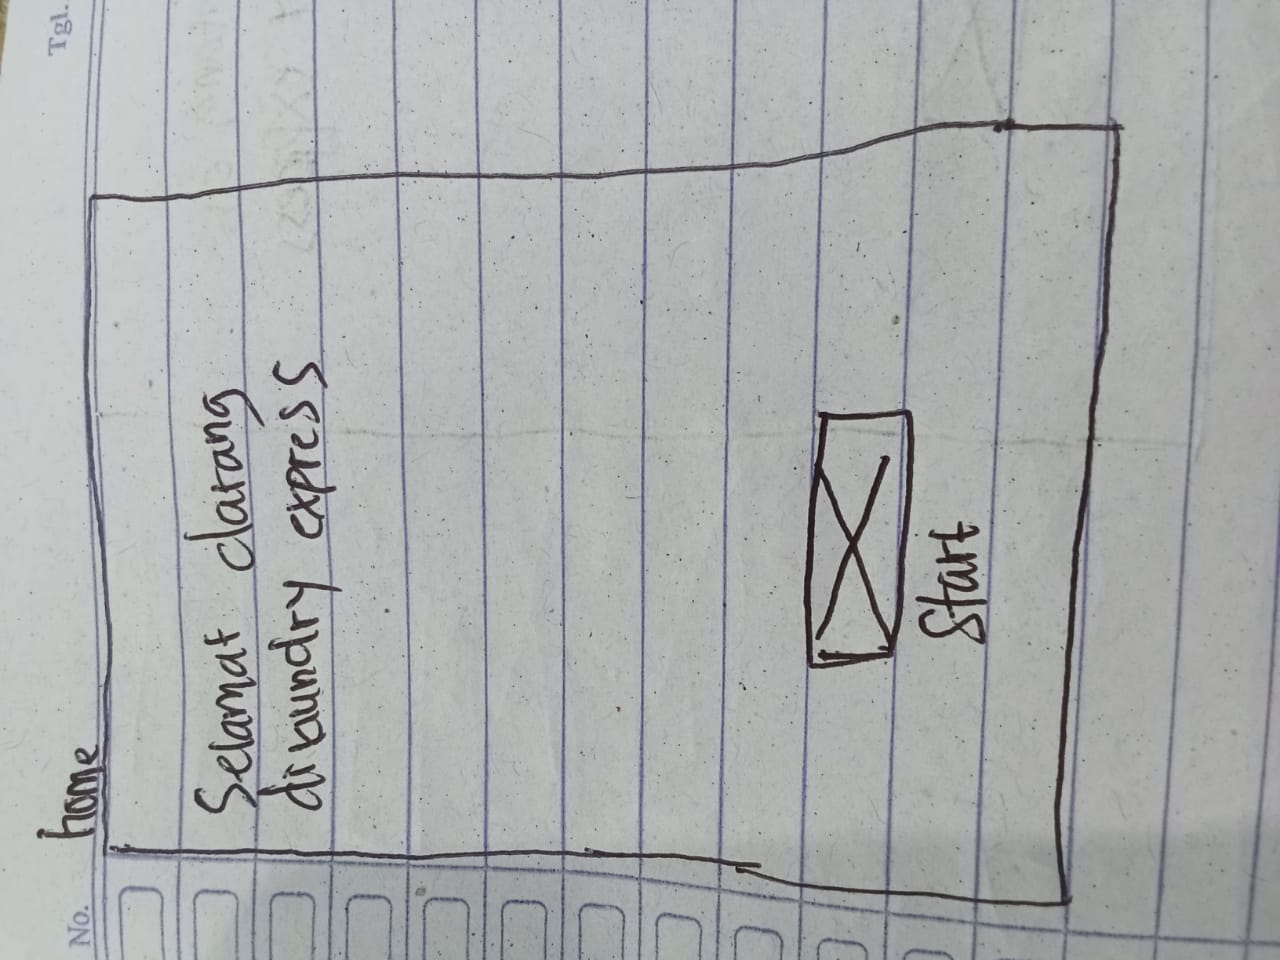 No.
Tgl.
home
Selamat datang
di laundry express
Start